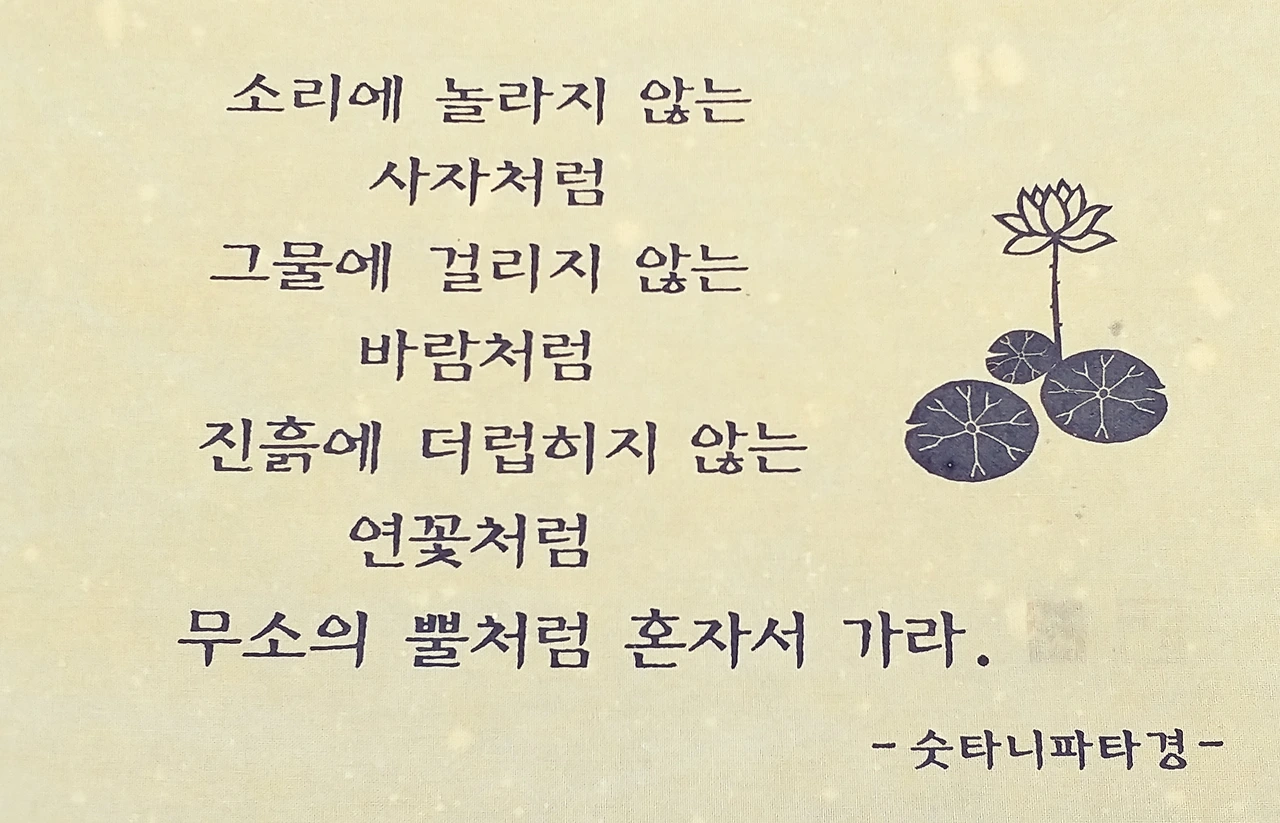 소리에 놀라지 않는
사자처럼
그물에 걸리지 않는
바람처럼
진흙에 더럽히지 않는
연꽃처럼
무소의 뿔처럼 혼자서 가라.
- 숫타니파타경 -